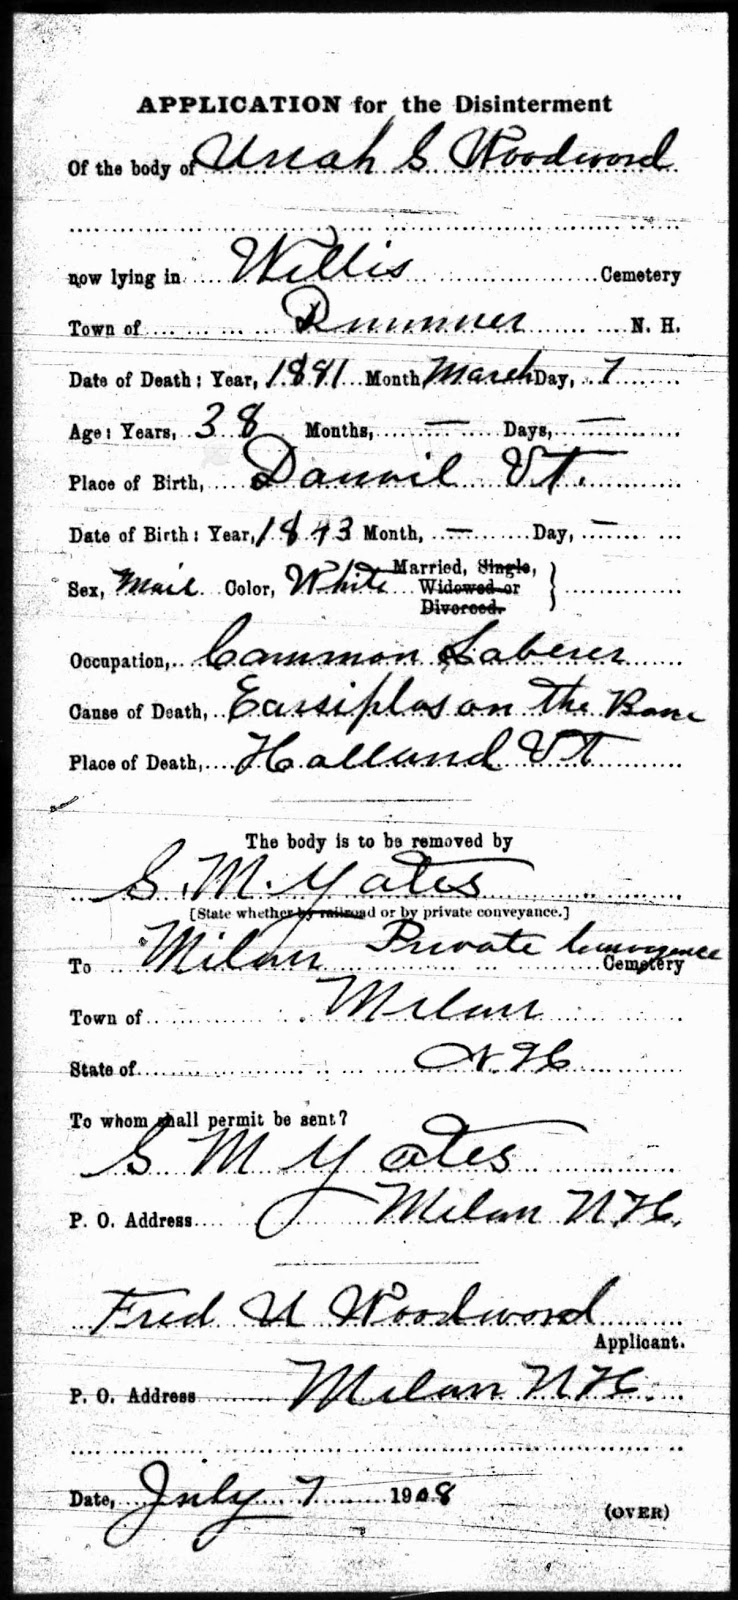 APPLICATION for the Disinterment
Of the body of Uriah S Woodword
now lying in Willis Cemetery
Town of Dummer N. H.
Date of Death: Year, 1881 Month March Day, 7
Age: Years, 38 Months, — Days, —
Place of Birth, Danvil Vt.
Date of Birth: Year, 1843 Month, — Day, —
Sex, Mail Color, White Married, Single,
Widowed or
Divorced.
Occupation, Common Laberer
Cause of Death, on the
Place of Death, Holland Vt
The body is to be removed by
S. M. Yates
[State whether by railroad or by private conveyance.]
Private
To Milan Cemetery
Town of Milan
State of N. H
To whom shall permit be sent?
S M Yates
P. O. Address Milan N. H.
Fred U Woodword
Applicant.
P. O. Address Milan N H.
Date, July 7 1908
(OVER)